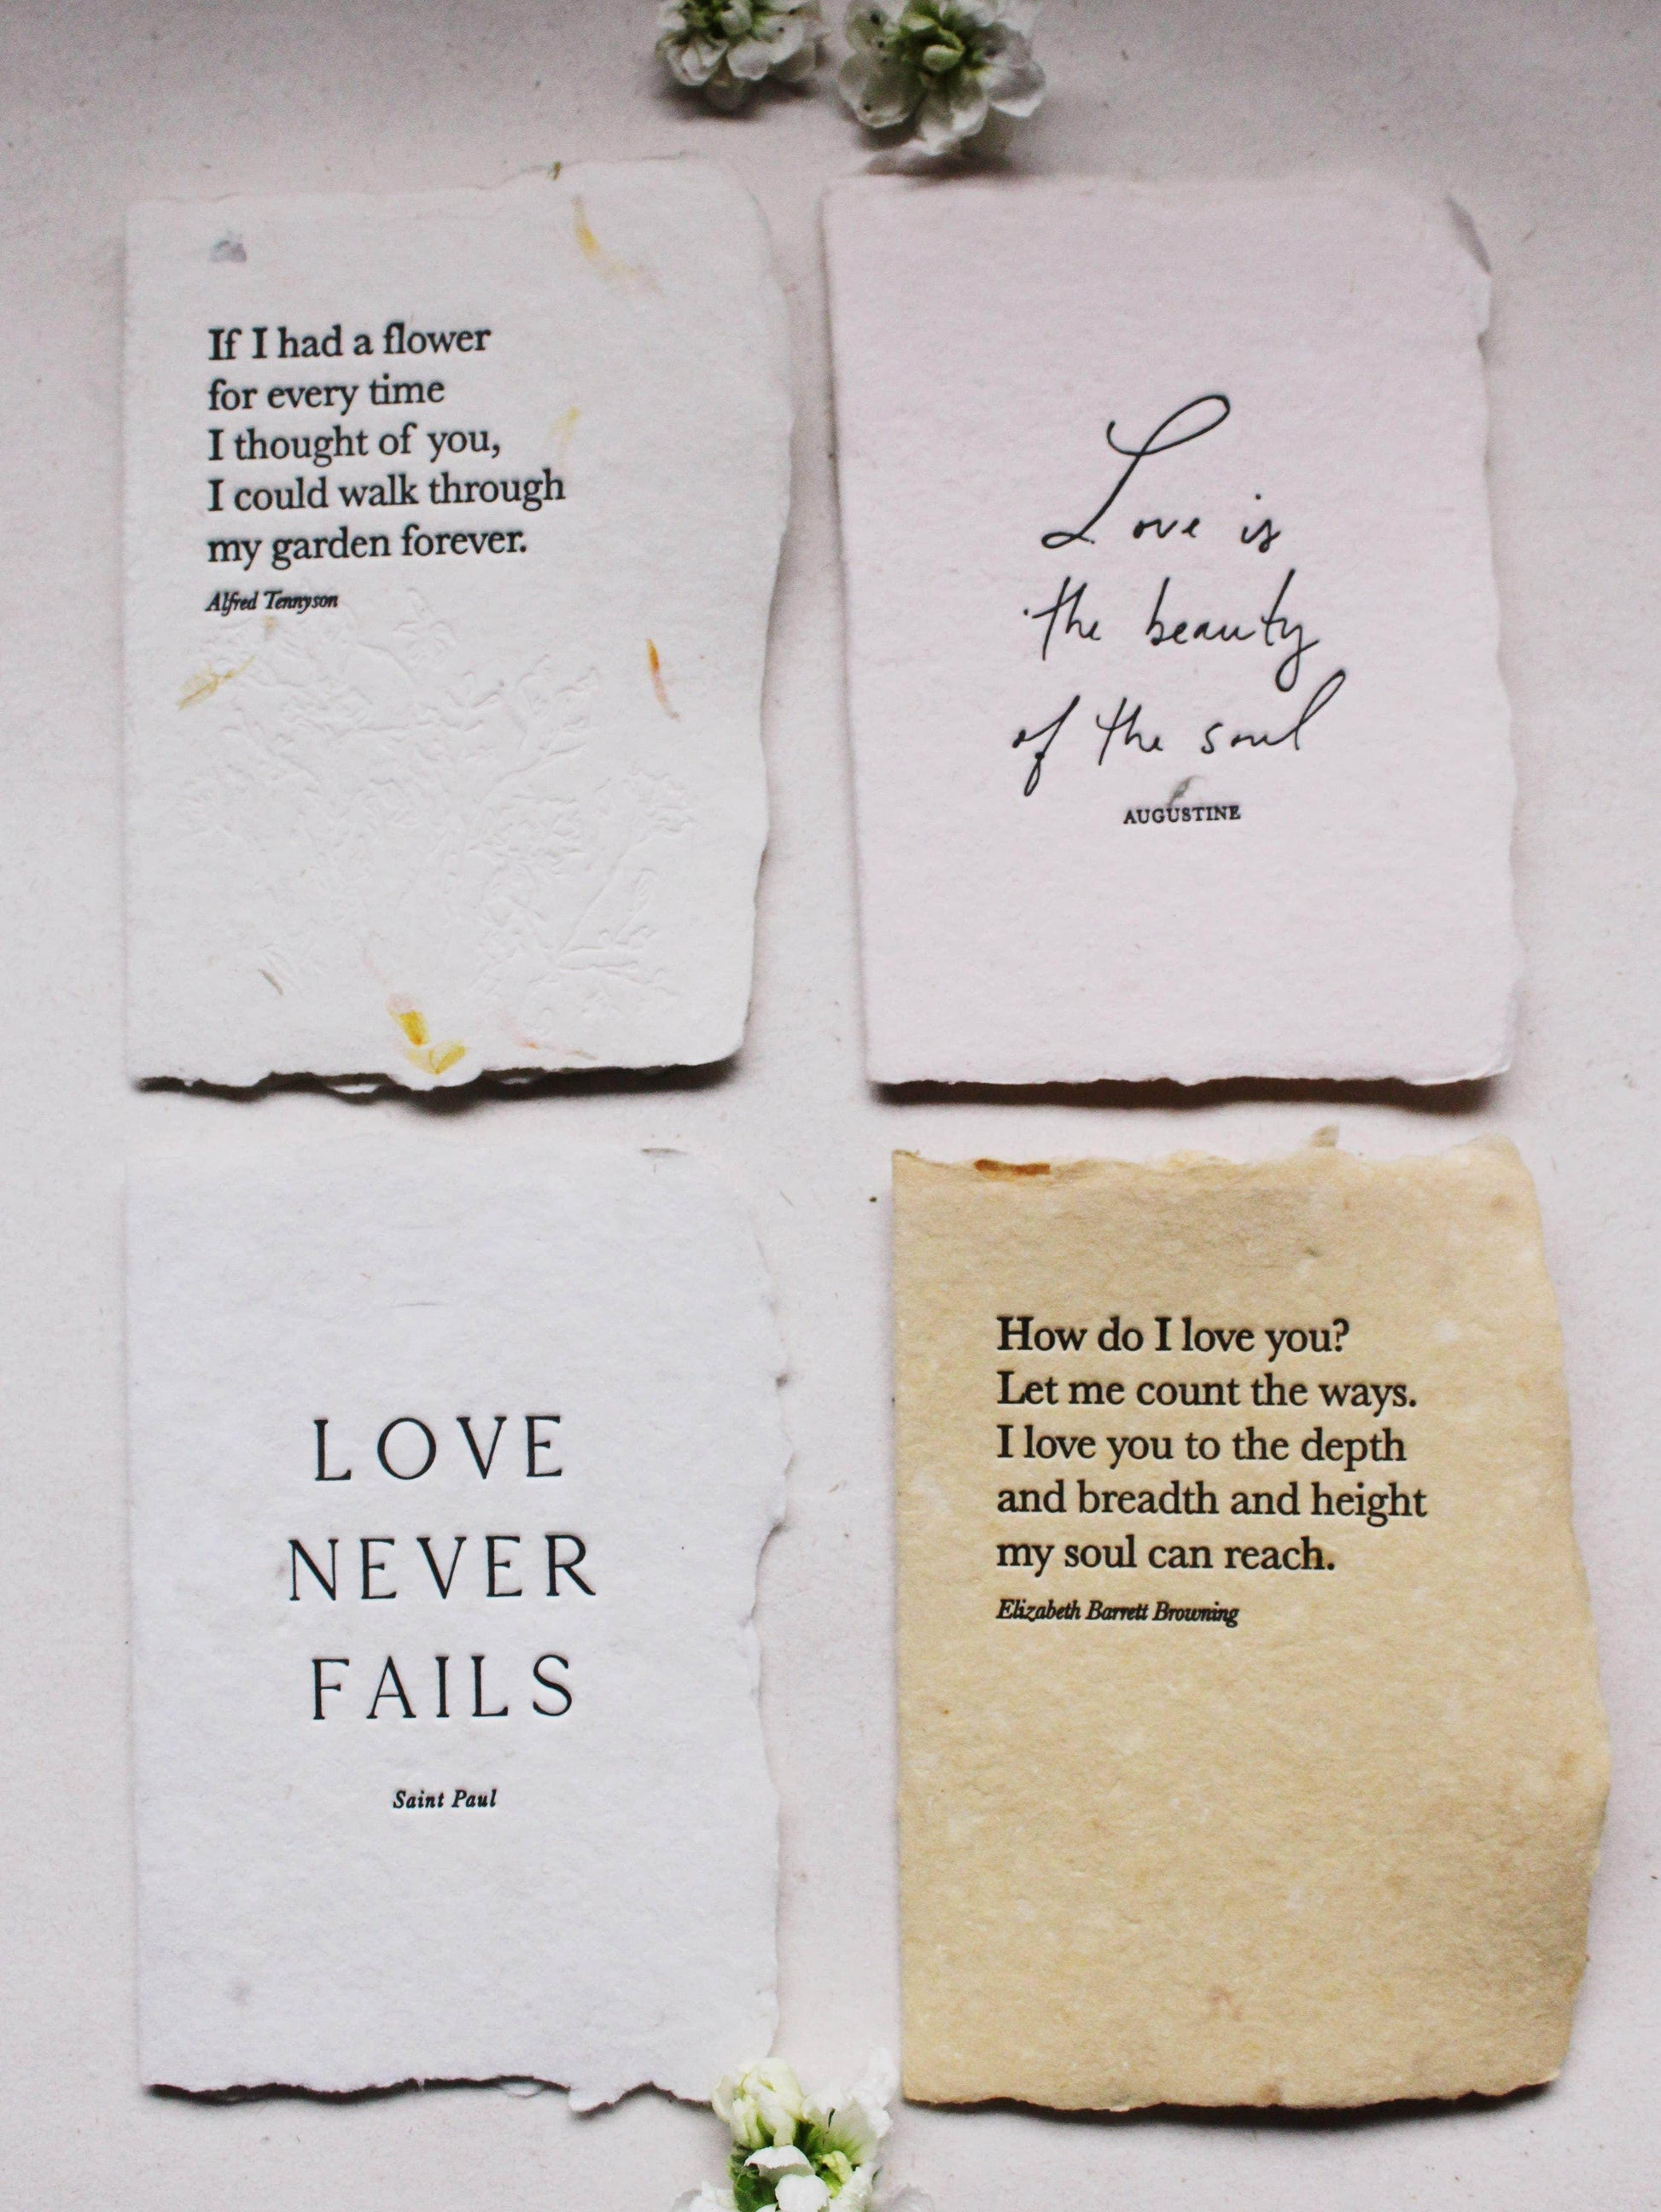 If I had a flower
for every time
I thought of you,
I could walk through
my garden forever.
Alfred Tennyson
Love is
the beauty
of the soul
AUGUSTINE
LOVE
NEVER
FAILS
Saint Paul
How do I love you?
Let me count the ways.
I love you to the depth
and breadth and height
my soul can reach.
Elizabeth Barrett Browning